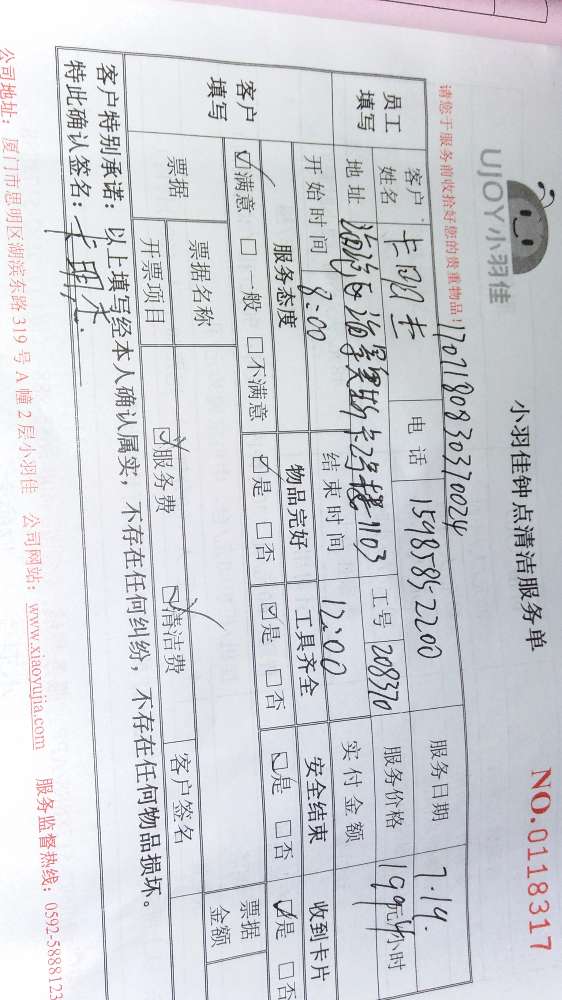 UJOY小羽佳
小羽佳钟点清洁服务单
NO.0118317
请您于服务前收拾好您的贵重物品!
1707180830370024
员工填写 客户姓名 卡明 电话 15985852200 服务日期 7.19.
地址 海沧区海 1103 工号 208370 服务价格 199元/4小时
开始时间 8:00 结束时间 12:00 实付金额
客户填写 服务态度 物品完好 工具齐全 安全结束 收到卡片
☑满意 □一般 □不满意 ☑是 □否 ☑是 □否 ☑是 □否 ☑是 □否
票据 票据名称 客户签名 票据金额
开票项目 ☑服务费 ☑清洁费
客户特别承诺:以上填写经本人确认属实,不存在任何纠纷,不存在任何物品损坏。
特此确认签名:卡明
公司地址:厦门市思明区湖滨东路319号A幢2层小羽佳 公司网站:www.xiaoyujia.com 服务监督热线:0592-5888123